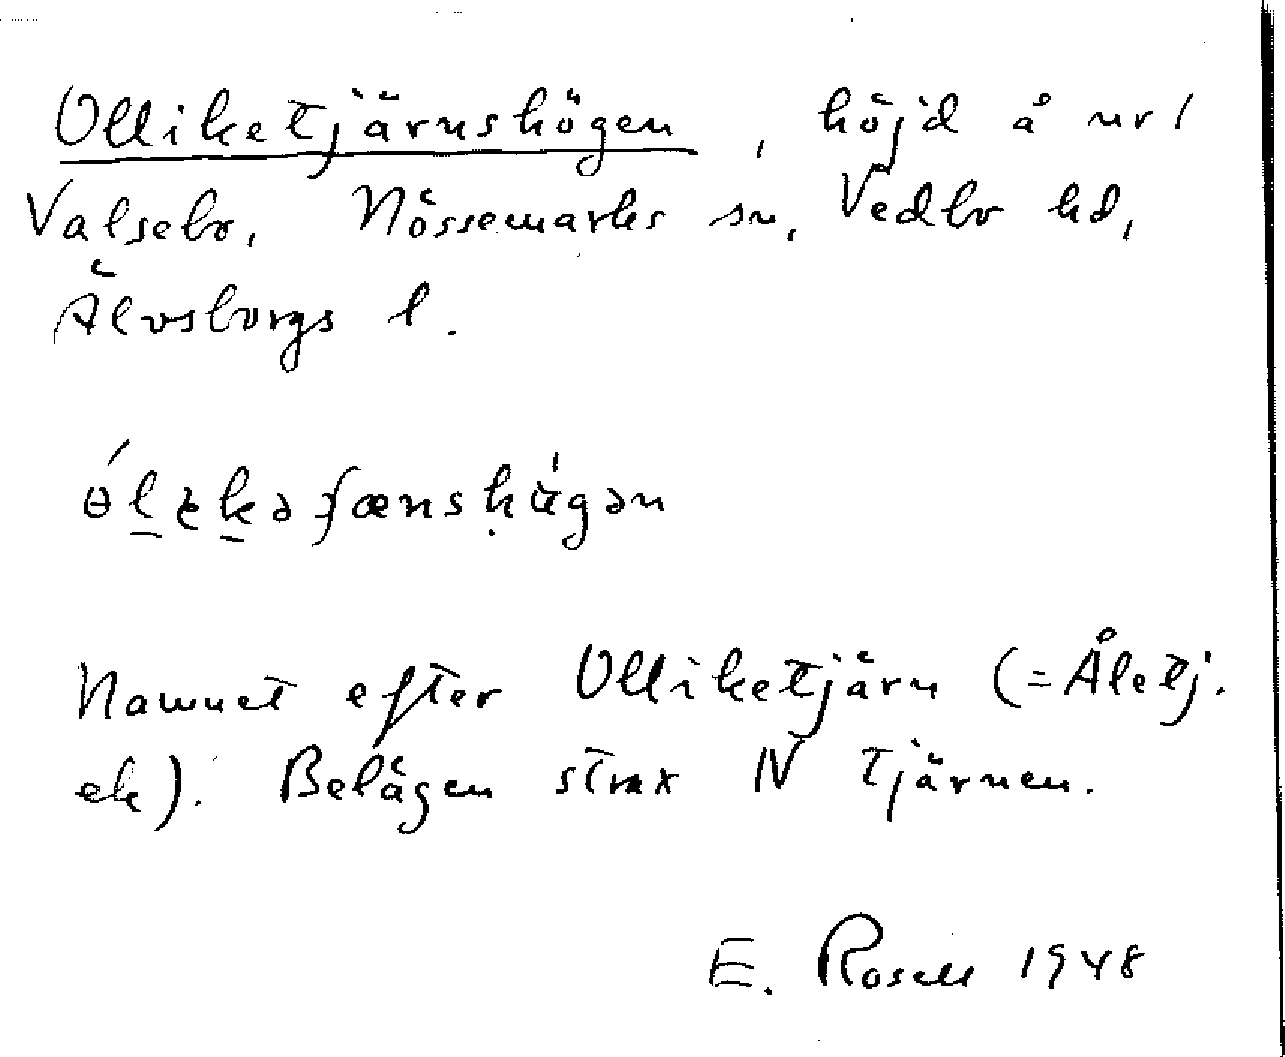 Ulliketjärnshögen, höjd å nr 1
Valsebo, Nössemarks sn, Vedbo hd,
Älvsborgs l.
Namnet efter Ulliketjärn (=Åletj.
ek). Belägen strax N tjärnen.
E. Rosell 1948